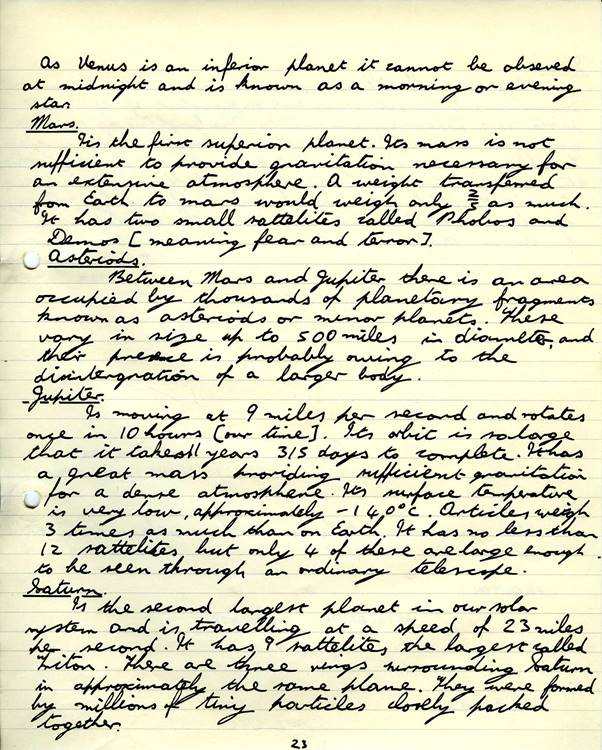 As Venus is an inferior planet it cannot be obseved
at midnight and is known as a morning or evening
star.
Mars.
Iis the first superior planet. Its mass is not
sufficient to provide gravitation necessary for
an extensive atmosphere. A weight transferred
from Earth to mars would weigh only 2/5 as much.
It has two small sattelites called Phobos and
Demos [meaning fear and terror].
Asteriods.
Between Mars and Jupiter there is an area
occupied by thousands of planetary fragments
known as asteriods or minor planets. These
vary in size up to 500 miles in diameter, and
their presence is probably owing to the
disintergration of a larger body.
Jupiter.
Is moving at 9 miles per second and rotates
once in 10 hours [our time]. Its orbit is so large
that it takes 11 years 315 days to complete. It has
a great mass providing sufficient gravitation
for a dense atmosphere. Its surface temperature
is very low, approximately -140°C. Articles weigh
3 times as much than on Earth. It has no less than
12 sattelites, but only 4 of these are large enough
to be seen through an ordinary telescope.
Saturn.
Is the second largest planet in our solar
system and is travelling at a speed of 23 miles
per second. It has 9 sattelites the largest called
Triton. There are three rings surrounding Saturn
in approximately the same plane. They were formed
by millions of tiny particles closely packed
together.
23